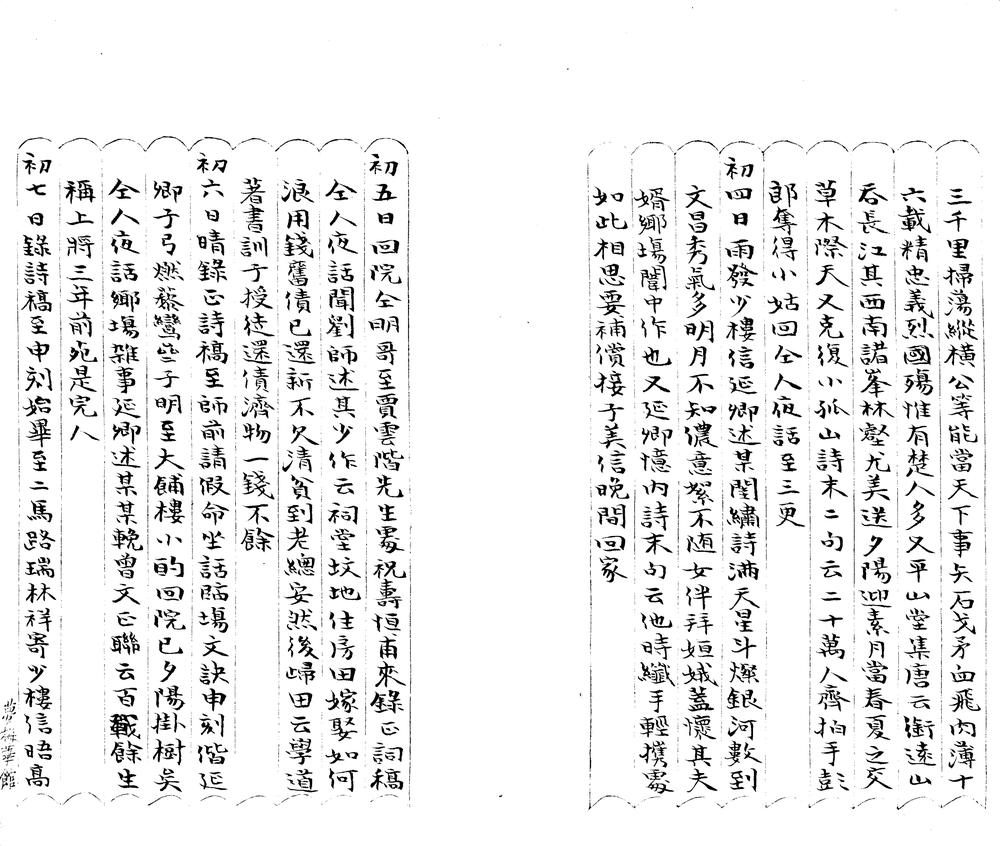 三千里掃蕩縱橫公等能當天下事矢石戈矛血飛肉薄十
六載精忠義烈國殤惟有楚人多又平山堂集唐云銜遠山
吞長江其西南諸峯林壑尤美送夕陽迎素月當春夏之交
草木際天又克復小孤山詩末二句云二十萬人齊拍手彭
郎奪得小姑回仝人夜話至三更
初四日雨發少樓信延卿述某閨繡詩滿天星斗燦銀河數到
文昌秀氣多明月不知儂意絮不随女伴拜姮娥蓋懷其夫
婿鄉場闈中作也又延卿憶內詩末句云他時纖手輕攜處
如此相思要補償接子美信晚間回家
初五日回院仝明哥至賈雲階先生處祝壽恒甫來錄正詞稿
仝人夜話聞劉師述其少作云祠堂坟地住房田嫁娶如何
浪用錢舊債已還新不欠清貧到老總安然後歸田云學道
著書訓子授徒還債濟物一錢不餘
初六日晴錄正詩稿至師前請假命坐話臨場文訣申刻偕延
卿子弓燃藜鸞坒子明至大鋪樓小酌回院已夕陽掛樹吳
仝人夜話鄉場雜事延卿述某某輓曾文正聯云百戰餘生
稱上將三年前宛是完人
初七日錄詩稿至申刻始畢至二馬路瑞林祥寄少樓信晤高
梅華館